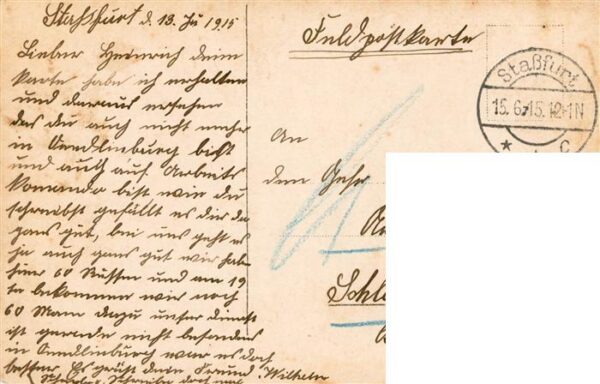 Staßfurt d. 13. Ju 1915
Lieber Heinrich dein
karte habe ich erhalten
und daraus ersehen
das du auch nicht mehr
in Quedlinburg bist
und auch auf Arbeits
Komando bist wie du
schreibst gefällt es dir da
gans gut, bei uns geht es
ja auch gans gut wir hab
hier 60 Russen und am 19
te bekommen wir noch
60 Mann dazu unser dienst
ist gerade nicht besonders
in Quedlinburg war es doch
besser. Es grüst dein Freund Wilhelm
Schreibe doch mal
Feldpostkarte
Staßfurt
15.6.15.12-1N
* c
An
dem Gefr
Schle